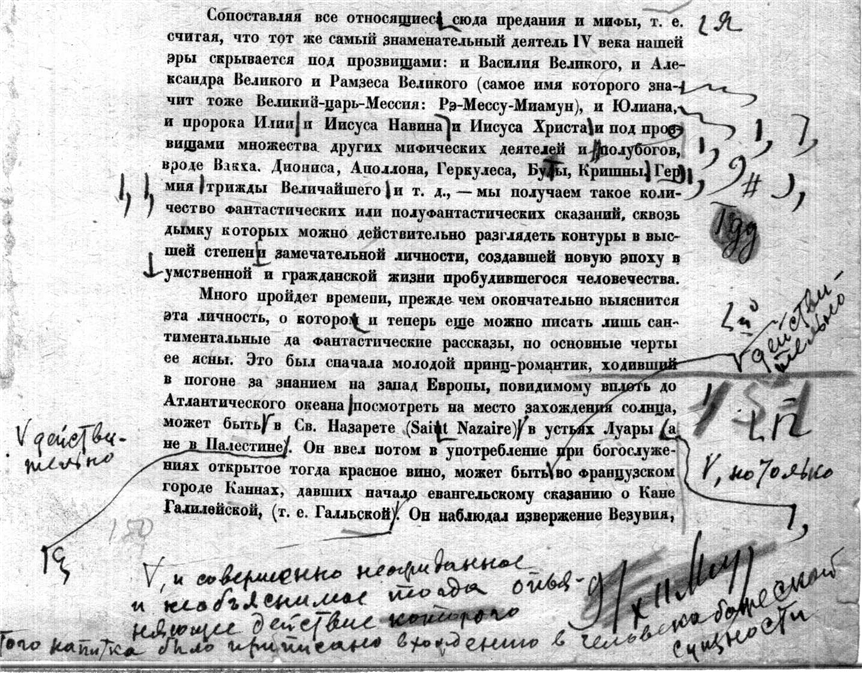 Сопоставляя все относящиеся сюда предания и мифы, т. е.
считая, что тот же самый знаменательный деятель IV века нашей
эры скрывается под прозвищами: и Василия Великого, и Але-
ксандра Великого и Рамзеса Великого (самое имя которого зна-
чит тоже Великий-царь-Мессия: Рэ-Мессу-Миамун), и Юлиана,
и пророка Илии и Иисуса Навина и Иисуса Христа и под проз-
вищами множества других мифических деятелей и полубогов,
вроде Вакха. Диониса, Аполлона, Геркулеса, Будды, Кришны, Гер
мия трижды Величайшего и т. д., — мы получаем такое коли-
чество фантастических или полуфантастических сказаний, сквозь
дымку которых можно действительно разглядеть контуры в выс-
шей степени замечательной личности, создавшей новую эпоху в
умственной и гражданской жизни пробудившегося человечества.
Много пройдет времени, прежде чем окончательно выяснится
эта личность, о которой и теперь еще можно писать лишь сан-
тиментальные да фантастические рассказы, но основные черты
ее ясны. Это был сначала молодой принц-романтик, ходивший
в погоне за знанием на запад Европы, повидимому вплоть до
Атлантического океана посмотреть на место захождения солнца,
может быть в Св. Назарете (Saint Nazaire) в устьях Луары (а
не в Палестине). Он ввел потом в употребление при богослуже-
ниях открытое тогда красное вино, может быть во французском
городе Каннах, давших начало евангельскому сказанию о Кане
Галилейской, (т. е. Галльской). Он наблюдал извержение Везувия,
я
дд
действи-
тельно
действи-
тельно
но только
150
, и совершенно неожиданное
и необъяснимое тогда опья-
няющее действие которого
того напитка было приписано вхождению в человека божеской
сущности